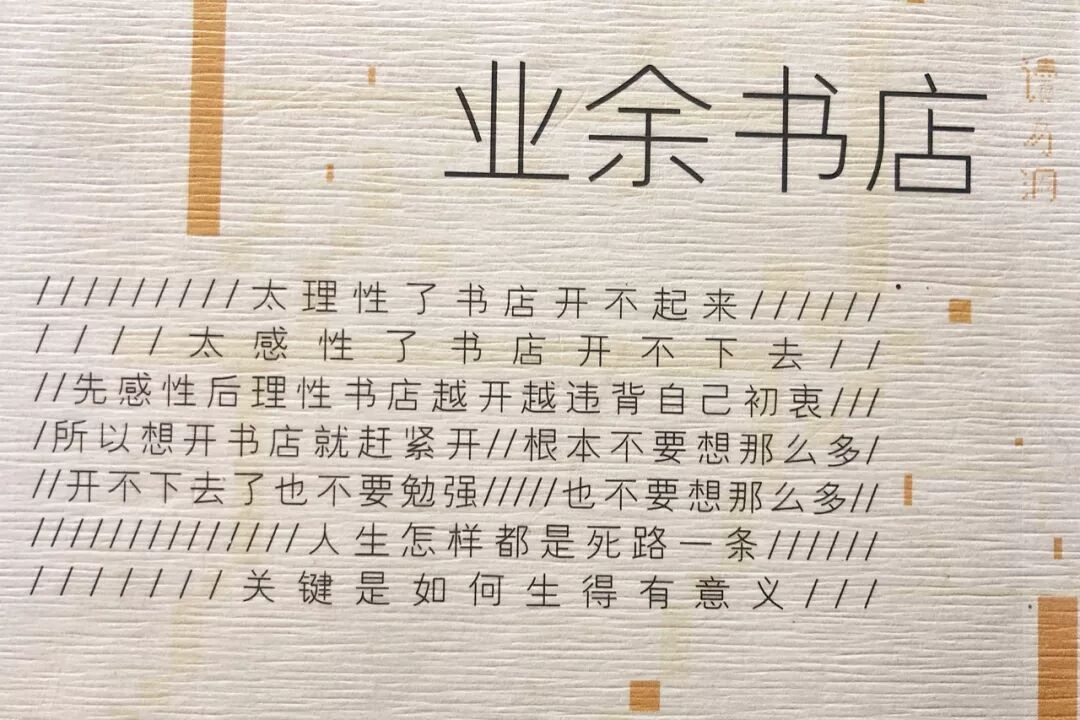 业余书店
/////////太理性了书店开不起来//////
////太感性了书店开不下去//
//先感性后理性书店越开越违背自己初衷///
/所以想开书店就赶紧开//根本不要想那么多/
//开不下去了也不要勉强/////也不要想那么多//
//////////////人生怎样都是死路一条//////
///////关键是如何生得有意义///